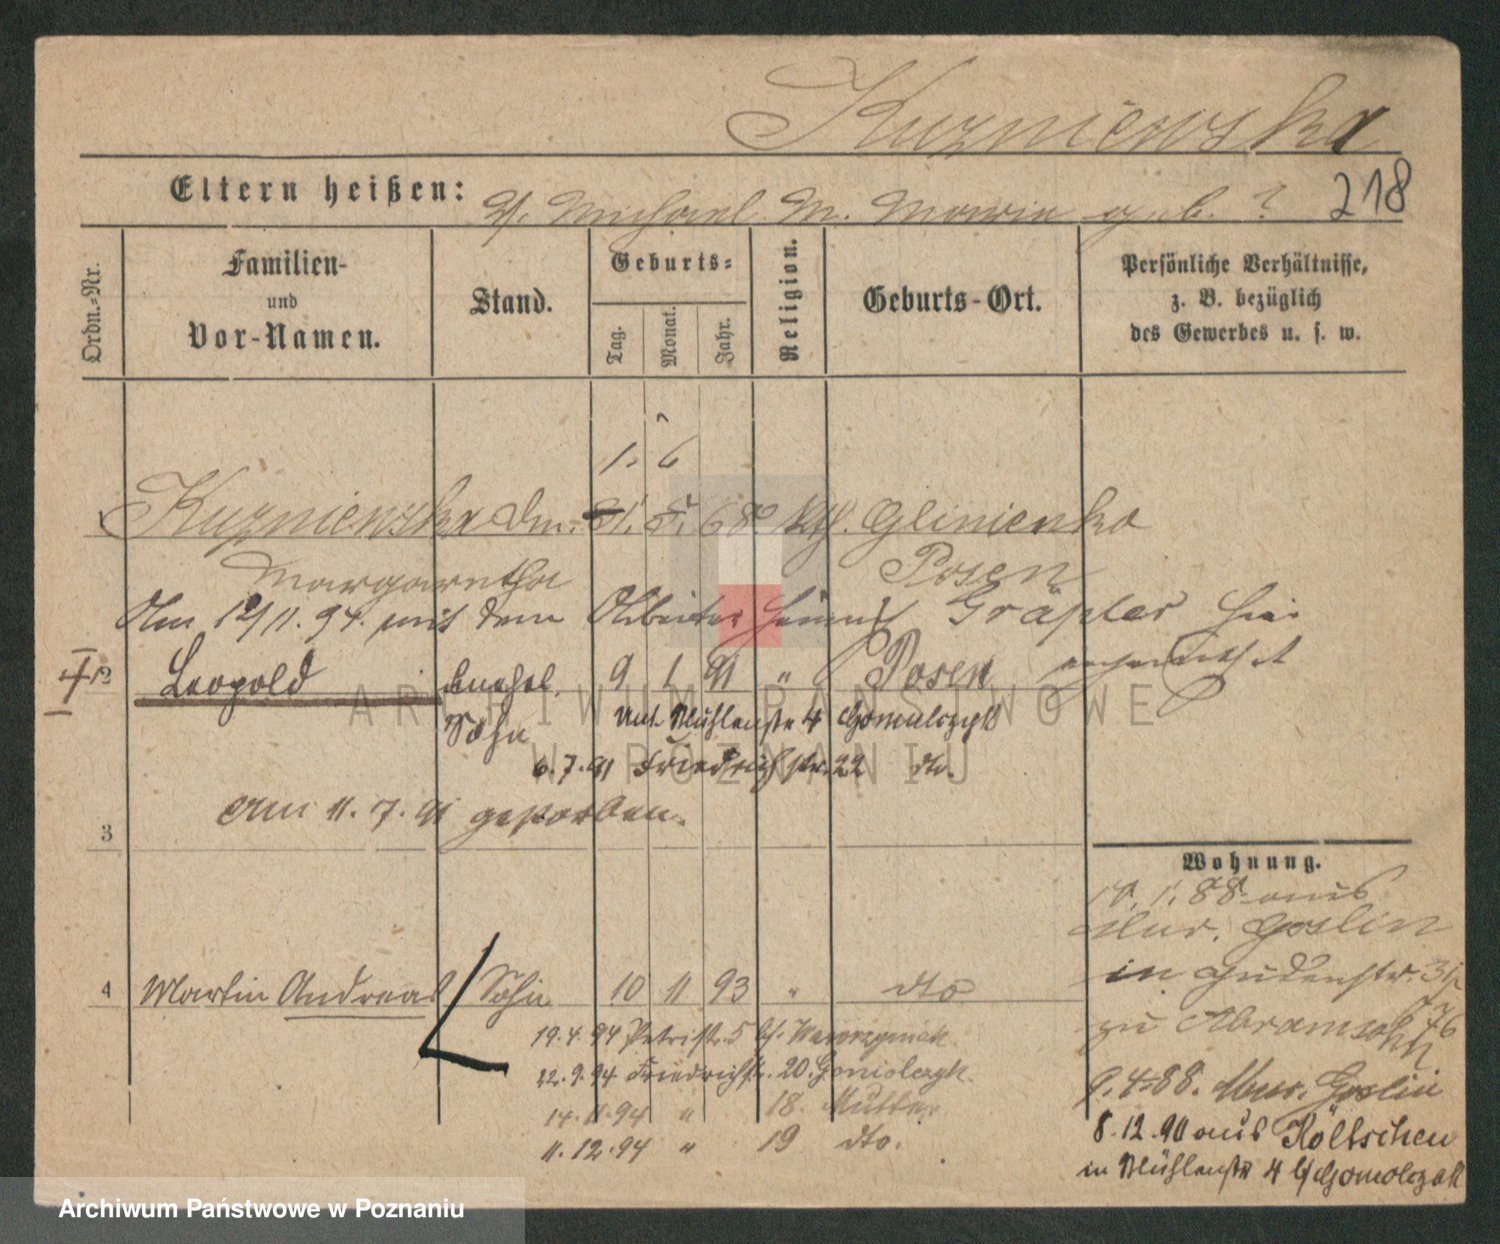 Kuzniewska
218
Eltern heißen: V. Michael M. Marie geb. ?
Ordn.-Nr.
Familien-
und
Vor-Namen.
Stand.
Geburts-
Tag.
Monat.
Jahr.
Religion.
Geburts-Ort.
Persönliche Verhältnisse,
z. B. bezüglich
des Gewerbes u. s. w.
1. 6
1 Kuzniewska 31. 5. 68 kth. Glinienko
Margaretha Posen
Am 12/11. 94. mit dem Arbeiter Gräpler hier
verheirathet
2 Leopold unehel. 9 1 91 " Posen
Sohn Unt. Mühlenstr 4 Gomulczyk
6.7.91 Friedrichstr. 22 dto.
am 11.7.91 gestorben.
3
Wohnung.
10. 1. 88 aus
Mur. Goslin
in Judenstr. 31
zu Abramsohn
9. 4. 88. Mur. Goslin
8.12.90 aus Költschen
in Mühlenstr 4 b/ Gomolczak
4 Martin Andreas Sohn 10 11 93 " dto
19.4.94 Petristr. 5 b/. Wawrzyniak
22.9.94 Friedrichstr. 20. Gomolczyk.
14.11.94 " 18. Mutter
11.12.94 " 19 dto.
ARCHIWUM PAŃSTWOWE
W POZNANIU
Archiwum Państwowe w Poznaniu